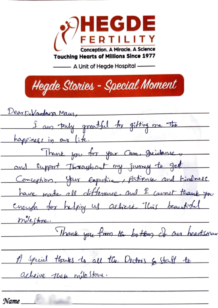 HEGDE
FERTILITY
Conception. A Miracle. A Science
Touching Hearts of Millions Since 1977
A Unit of Hegde Hospital
Hegde Stories - Special Moment
Dear Vandana Mam,
I am truly grateful for gifting me the
happiness in our life
Thank you for your Care, Guidance
and Support Throughout my journey to get
Conception. Your expertise, patience and kindness
have made all difference, and I cannot thank you
enough for helping us achieve This beautiful
milestone.
Thank you from the bottom of our heart
A special thanks to all the Doctors & Staff to
acheive this milestone.
Name